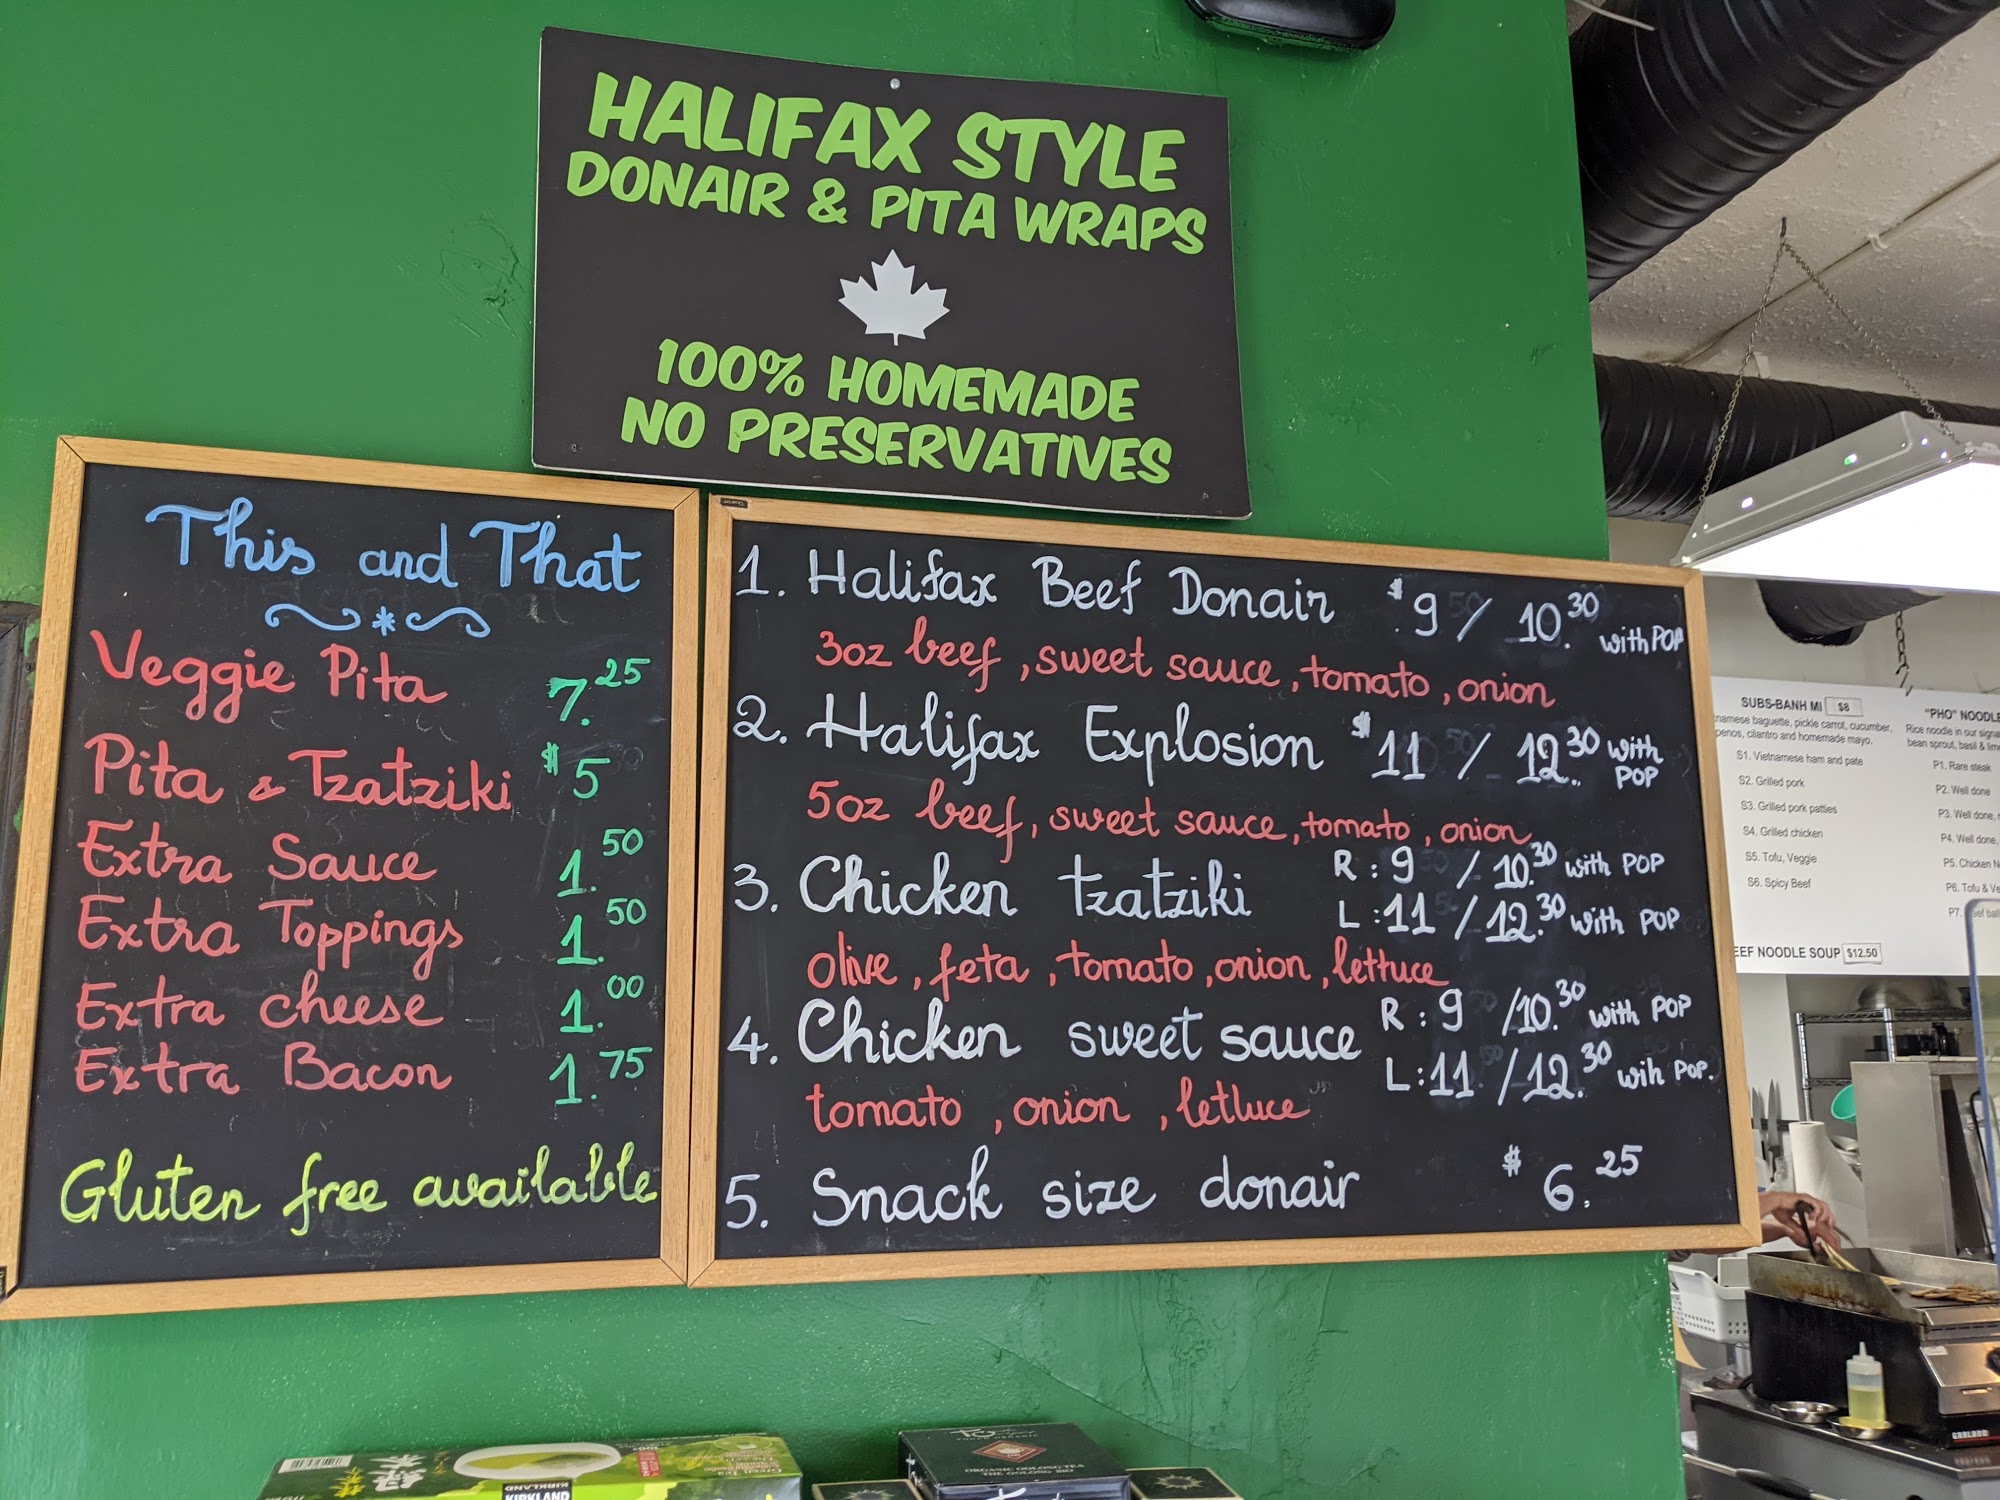 HALIFAX STYLE
DONAIR & PITA WRAPS
100% HOMEMADE
NO PRESERVATIVES
This and That
Veggie Pita 7.25
Pita & Tzatziki $5
Extra Sauce 1.50
Extra Toppings 1.50
Extra cheese 1.00
Extra Bacon 1.75
Gluten free available
1. Halifax Beef Donair $9 / 10.30 with POP
3oz beef, sweet sauce, tomato, onion
2. Halifax Explosion $11 / 12.30 with POP
5oz beef, sweet sauce, tomato, onion
3. Chicken tzatziki R: 9 / 10.30 with POP
L: 11 / 12.30 with POP
olive, feta, tomato, onion, lettuce
4. Chicken sweet sauce R: 9 / 10.30 with POP
L: 11 / 12.30 wih POP.
tomato, onion, lettuce
5. Snack size donair $6.25
SUBS-BANH MI $8
baguette, pickle carrot, cucumber,
cilantro and homemade mayo.
S1. Vietnamese ham and pate
S2. Grilled pork
S3. Grilled pork patties
S4. Grilled chicken
S5. Tofu, Veggie
S6. Spicy Beef
NOODLE SOUP $12.50
"PHO"
Rice noodle in our
bean sprout, basil &
P1. Rare steak
P2. Well done
P3. Well done,
P4. Well done,
P5. Chicken
P6. Tofu &
P7.
KIRKLAND
ORGANIC OOLONG TEA
GARLAND